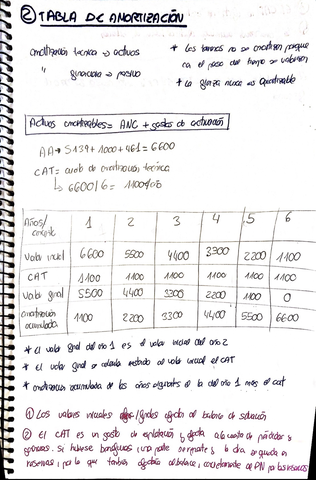 ② TABLA DE AMORTIZACIÓN
amortización técnica → activos
" financiera → pasivo
* Los terrenos no se amortizan porque
con el paso del tiempo se valorizan
* La fianza nunca es
Activos amortizables = ANC + gastos de activación
AA → 5139 + 1000 + 461 = 6600
CAT = cuota de amortización técnica
↳ 6600/6 = 1100
Años/ concepto 1 2 3 4 5 6
Valor inicial 6600 5500 4400 3300 2200 1100
CAT 1100 1100 1100 1100 1100 1100
Valor final 5500 4400 3300 2200 1100 0
amortización acumulada 1100 2200 3300 4400 5500 6600
* el valor final del año 1 es el valor inicial del año 2
* el valor final se calcula restando al valor inicial el CAT
* amortización acumulada de los años siguientes es la del año 1 mas el cat
① Los valores iniciales /finales afecta al balance de situación
② El CAT es un gasto de explotación y afecta a la cuenta de pérdidas y
ganancias. si hubiese beneficios, una parte se reparte y la otra se guarda en
reservas, por lo que también afectaría al balance, concretamente al PN por las reservas